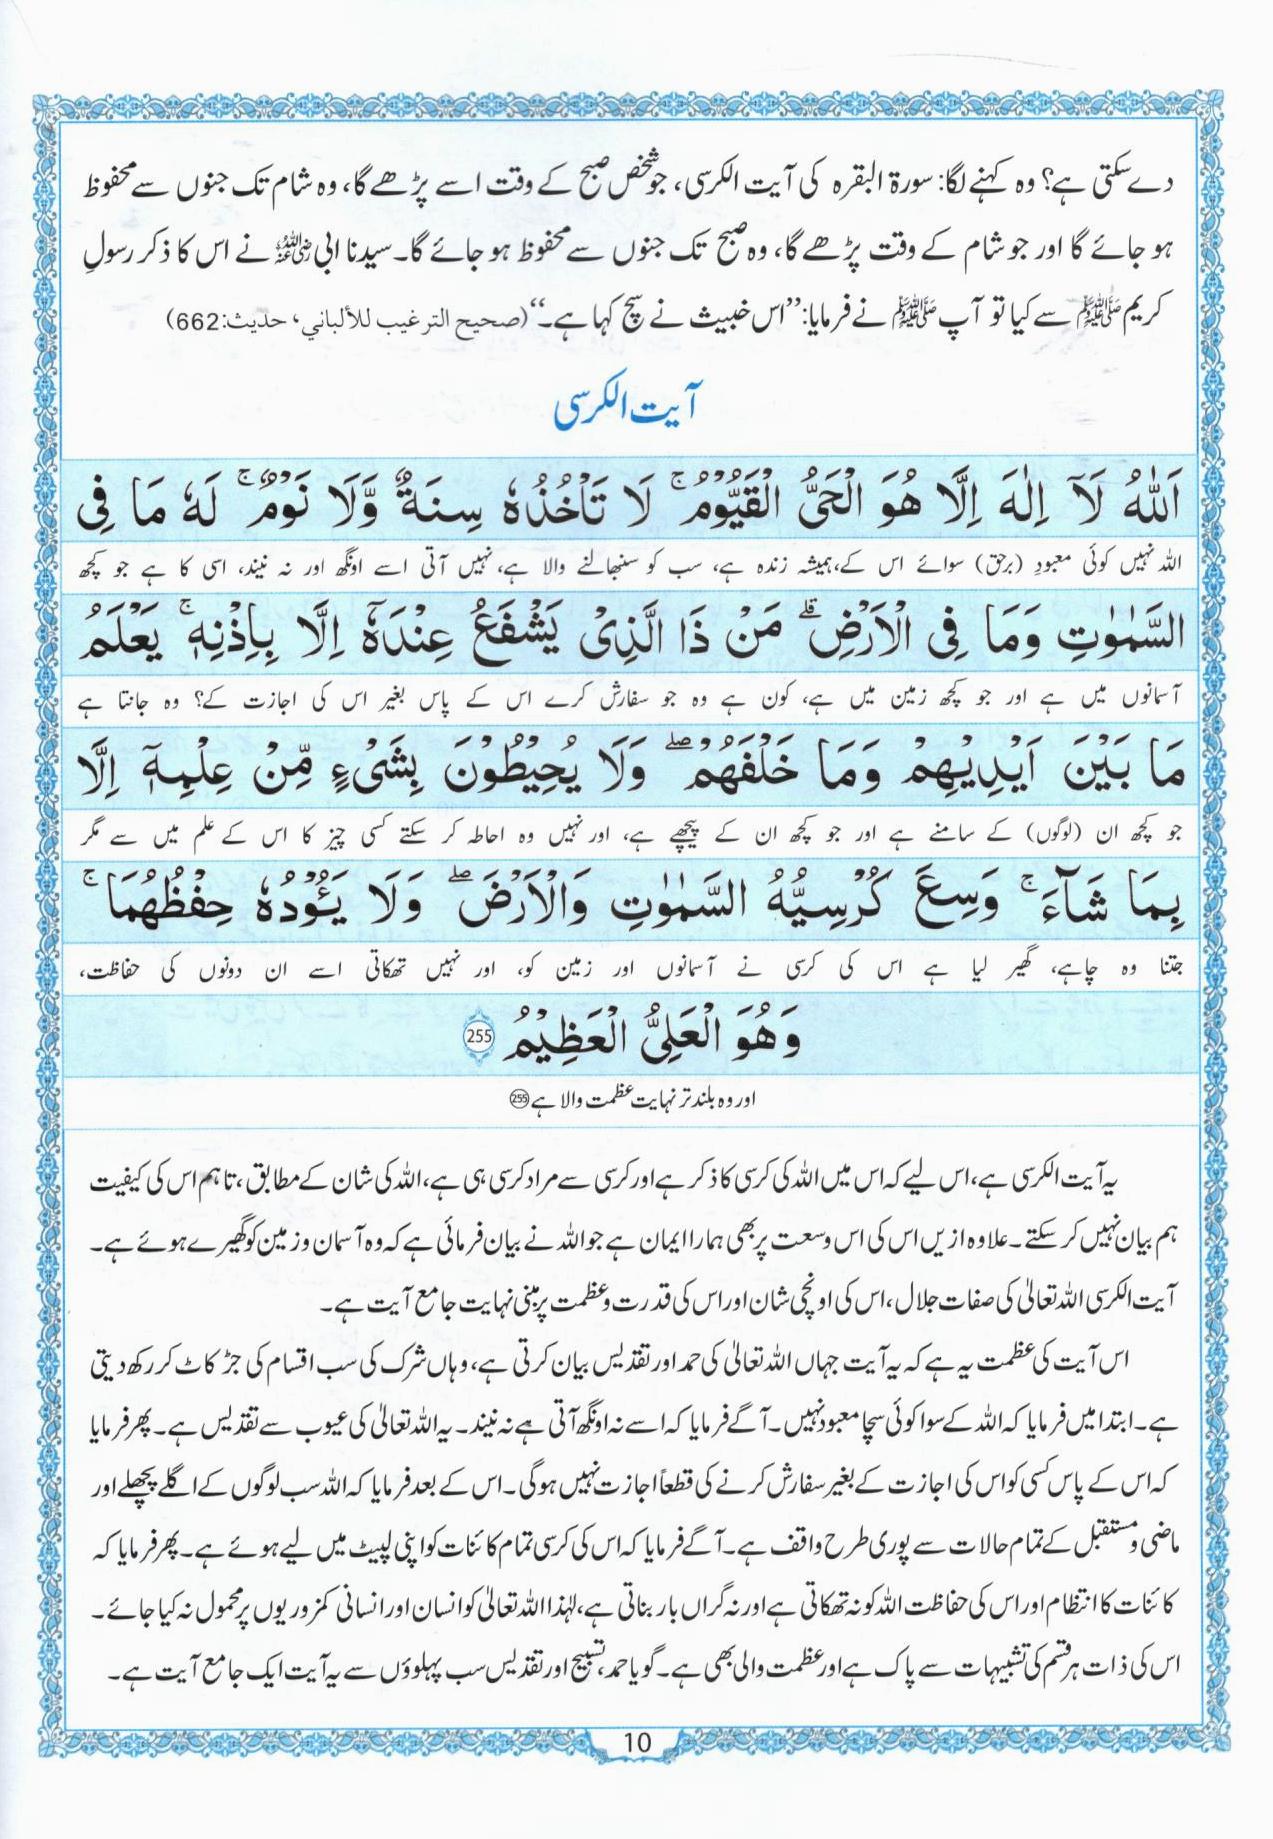 دے سکتی ہے؟ وہ کہنے لگا: سورۃ البقرہ کی آیت الکرسی، جو شخص صبح کے وقت اسے پڑھے گا، وہ شام تک جنوں سے محفوظ
ہو جائے گا اور جو شام کے وقت پڑھے گا، وہ صبح تک جنوں سے محفوظ ہو جائے گا۔ سیدنا ابی رضی اللہ عنہ نے اس کا ذکر رسولِ
کریم ﷺ سے کیا تو آپ ﷺ نے فرمایا: ’’اس خبیث نے سچ کہا ہے۔‘‘ (صحیح الترغیب للألباني، حدیث: 662)
آیت الکرسی
اَللّٰهُ لَآ اِلٰهَ اِلَّا هُوَ الْحَیُّ الْقَیُّوْمُ ۚ لَا تَاْخُذُهٗ سِنَةٌ وَّلَا نَوْمٌ ۚ لَهٗ مَا فِی
اللہ نہیں کوئی معبودِ (برحق) سوائے اس کے، ہمیشہ زندہ ہے، سب کو سنبھالنے والا ہے، نہیں آتی اسے اونگھ اور نہ نیند، اسی کا ہے جو کچھ
السَّمٰوٰتِ وَمَا فِی الْاَرْضِ ؕ مَنْ ذَا الَّذِیْ یَشْفَعُ عِنْدَهٗٓ اِلَّا بِاِذْنِهٖ ۚ یَعْلَمُ
آسمانوں میں ہے اور جو کچھ زمین میں ہے، کون ہے وہ جو سفارش کرے اس کے پاس بغیر اس کی اجازت کے؟ وہ جانتا ہے
مَا بَیْنَ اَیْدِیْهِمْ وَمَا خَلْفَهُمْ ۖ وَلَا یُحِیْطُوْنَ بِشَیْءٍ مِّنْ عِلْمِهٖٓ اِلَّا
جو کچھ ان (لوگوں) کے سامنے ہے اور جو کچھ ان کے پیچھے ہے، اور نہیں وہ احاطہ کر سکتے کسی چیز کا اس کے علم میں سے مگر
بِمَا شَآءَ ۚ وَسِعَ كُرْسِیُّهُ السَّمٰوٰتِ وَالْاَرْضَ ۖ وَلَا یَـُٔوْدُهٗ حِفْظُهُمَا ۚ
جتنا وہ چاہے، گھیر لیا ہے اس کی کرسی نے آسمانوں اور زمین کو، اور نہیں تھکاتی اسے ان دونوں کی حفاظت،
وَهُوَ الْعَلِیُّ الْعَظِیْمُ 255
اور وہ بلند تر نہایت عظمت والا ہے 255
یہ آیت الکرسی ہے، اس لیے کہ اس میں اللہ کی کرسی کا ذکر ہے اور کرسی سے مراد کرسی ہی ہے، اللہ کی شان کے مطابق، تاہم اس کی کیفیت
ہم بیان نہیں کر سکتے۔ علاوہ ازیں اس کی اس وسعت پر بھی ہمارا ایمان ہے جو اللہ نے بیان فرمائی ہے کہ وہ آسمان و زمین کو گھیرے ہوئے ہے۔
آیت الکرسی اللہ تعالیٰ کی صفات جلال، اس کی اونچی شان اور اس کی قدرت و عظمت پر مبنی نہایت جامع آیت ہے۔
اس آیت کی عظمت یہ ہے کہ یہ آیت جہاں اللہ تعالیٰ کی حمد اور تقدیس بیان کرتی ہے، وہاں شرک کی سب اقسام کی جڑ کاٹ کر رکھ دیتی
ہے۔ ابتدا میں فرمایا کہ اللہ کے سوا کوئی سچا معبود نہیں۔ آگے فرمایا کہ اسے نہ اونگھ آتی ہے نہ نیند۔ یہ اللہ تعالیٰ کی عیوب سے تقدیس ہے۔ پھر فرمایا
کہ اس کے پاس کسی کو اس کی اجازت کے بغیر سفارش کرنے کی قطعاً اجازت نہیں ہوگی۔ اس کے بعد فرمایا کہ اللہ سب لوگوں کے اگلے پچھلے اور
ماضی و مستقبل کے تمام حالات سے پوری طرح واقف ہے۔ آگے فرمایا کہ اس کی کرسی تمام کائنات کو اپنی لپیٹ میں لیے ہوئے ہے۔ پھر فرمایا کہ
کائنات کا انتظام اور اس کی حفاظت اللہ کو نہ تھکاتی ہے اور نہ گراں بار بناتی ہے، لہٰذا اللہ تعالیٰ کو انسان اور انسانی کمزوریوں پر محمول نہ کیا جائے۔
اس کی ذات ہر قسم کی تشبیہات سے پاک ہے اور عظمت والی بھی ہے۔ گویا حمد، تسبیح اور تقدیس سب پہلوؤں سے یہ آیت ایک جامع آیت ہے۔
10